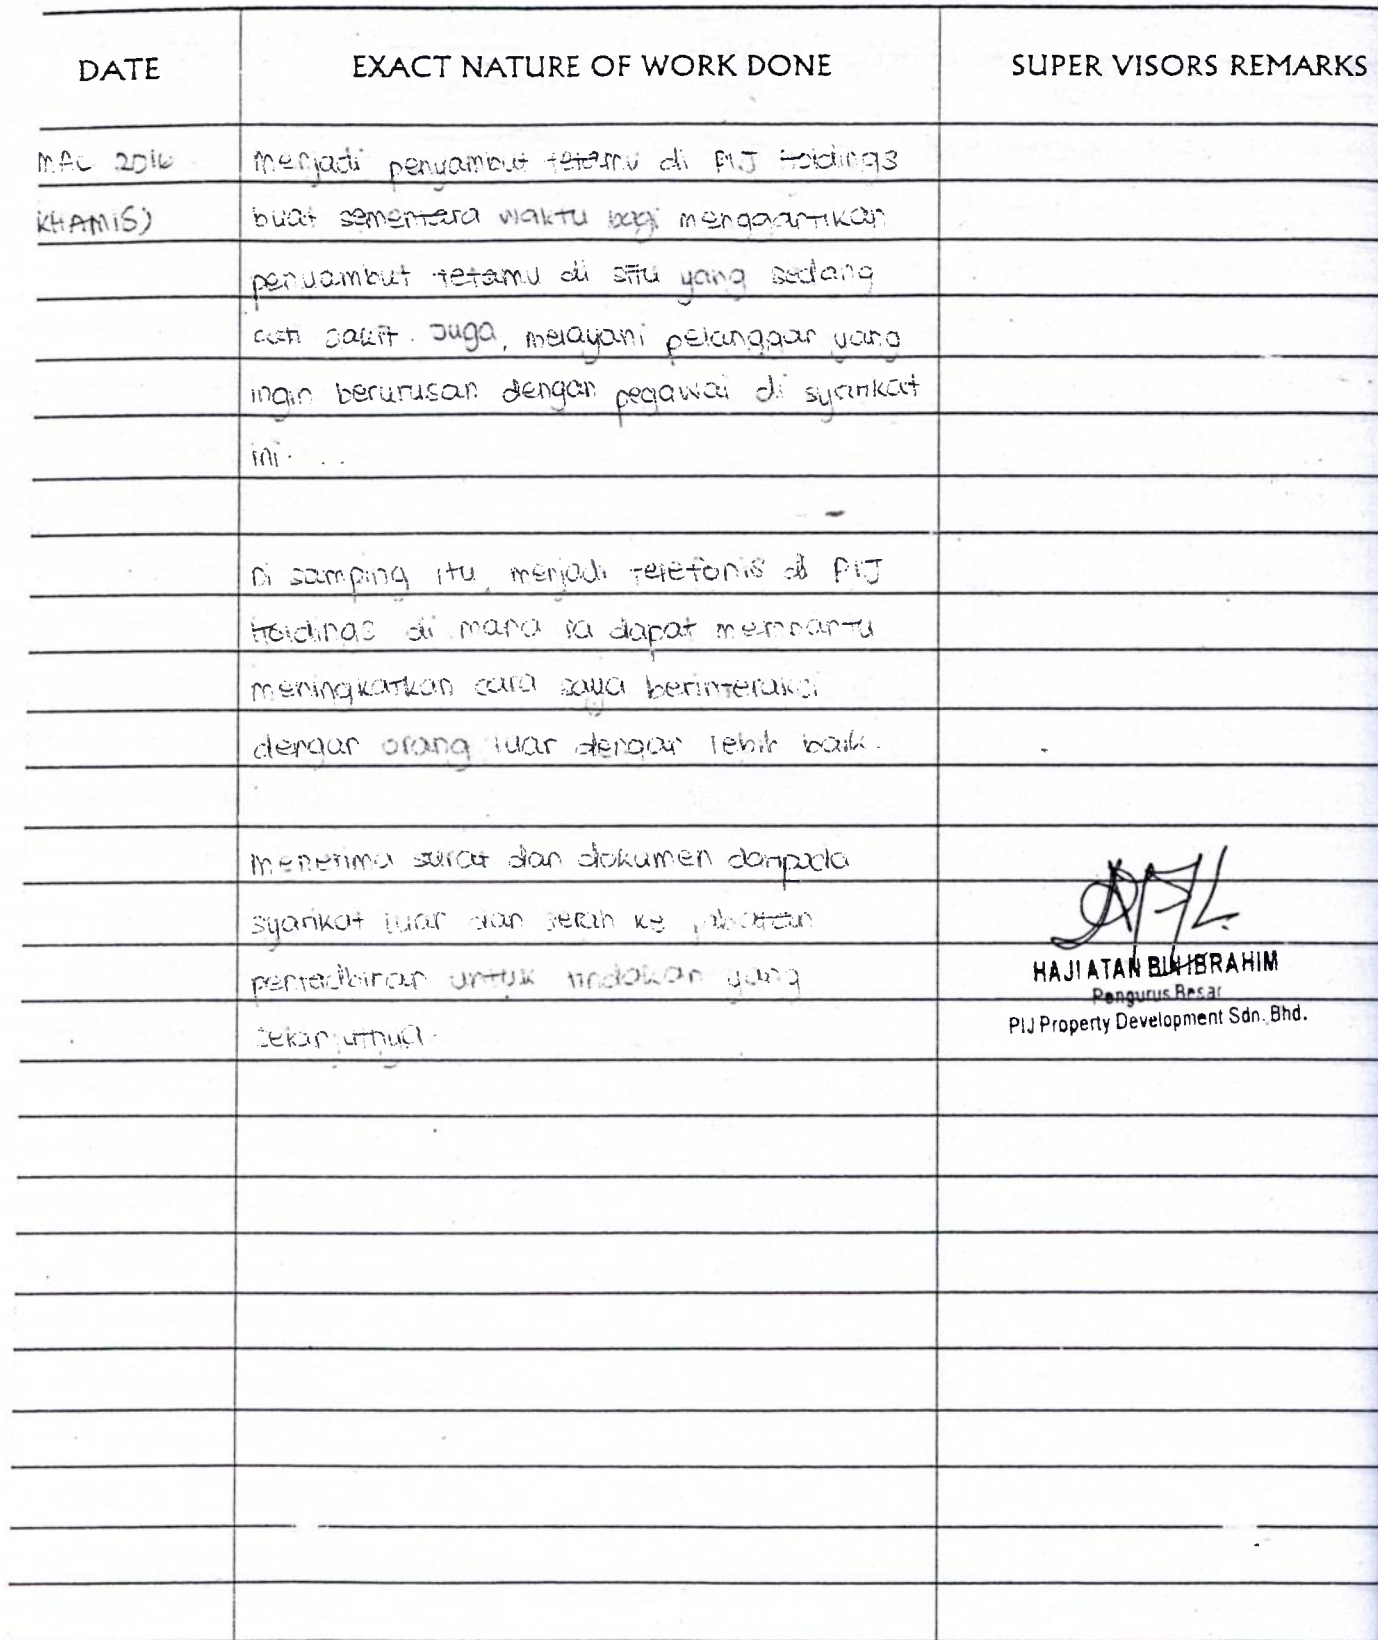 DATE EXACT NATURE OF WORK DONE SUPER VISORS REMARKS
MAC 2016 menjadi penyambut tetamu di PIJ Holdings
KHAMIS) buat sementara waktu bagi menggantikan
penyambut tetamu di situ yang sedang
cuti sakit. Juga, melayani pelanggan yang
ingin berurusan dengan pegawai di syarikat
ini.
Di samping itu, menjadi telefonis di PIJ
Holdings di mana ia dapat membantu
meningkatkan cara saya berinteraksi
dengan orang luar dengan lebih baik.
Menerima surat dan dokumen daripada
syarikat luar dan serah ke jabatan
pentadbiran untuk tindakan yang
selanjutnya.
HAJI ATAN BIN IBRAHIM
Pengurus Besar
PIJ Property Development Sdn. Bhd.